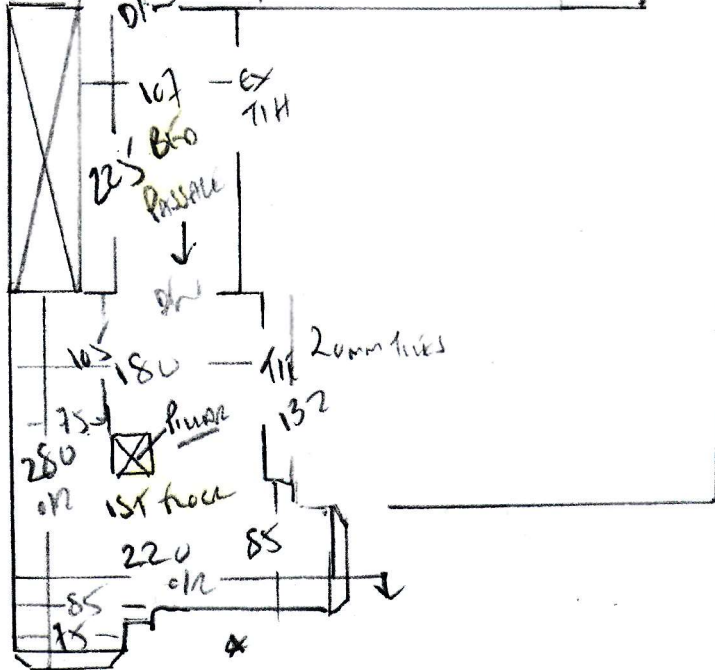 D/W
107 EX
T/H
225 BED
PASSAGE
D/W
105 180 T/H 20mm TILES
132
75 PILLAR
280
O/R 1ST FLOOR
220 85
O/R
85
75